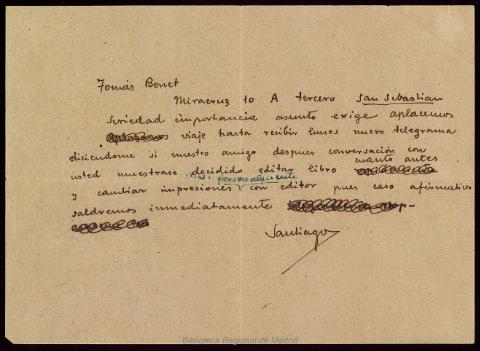 Tomás Bonet
Miracruz 10 A tercero San Sebastian
Seriedad importancia asunto exige aplacemos
viaje hasta recibir lunes nuevo telegrama
diciendome si nuestro amigo despues conversación con
usted muestrase decidido editar libro cuanto antes
personalmente
y cambiar impresiones con editor pues caso afirmativo
saldremos inmediatamente
Santiago
Biblioteca Regional de Madrid